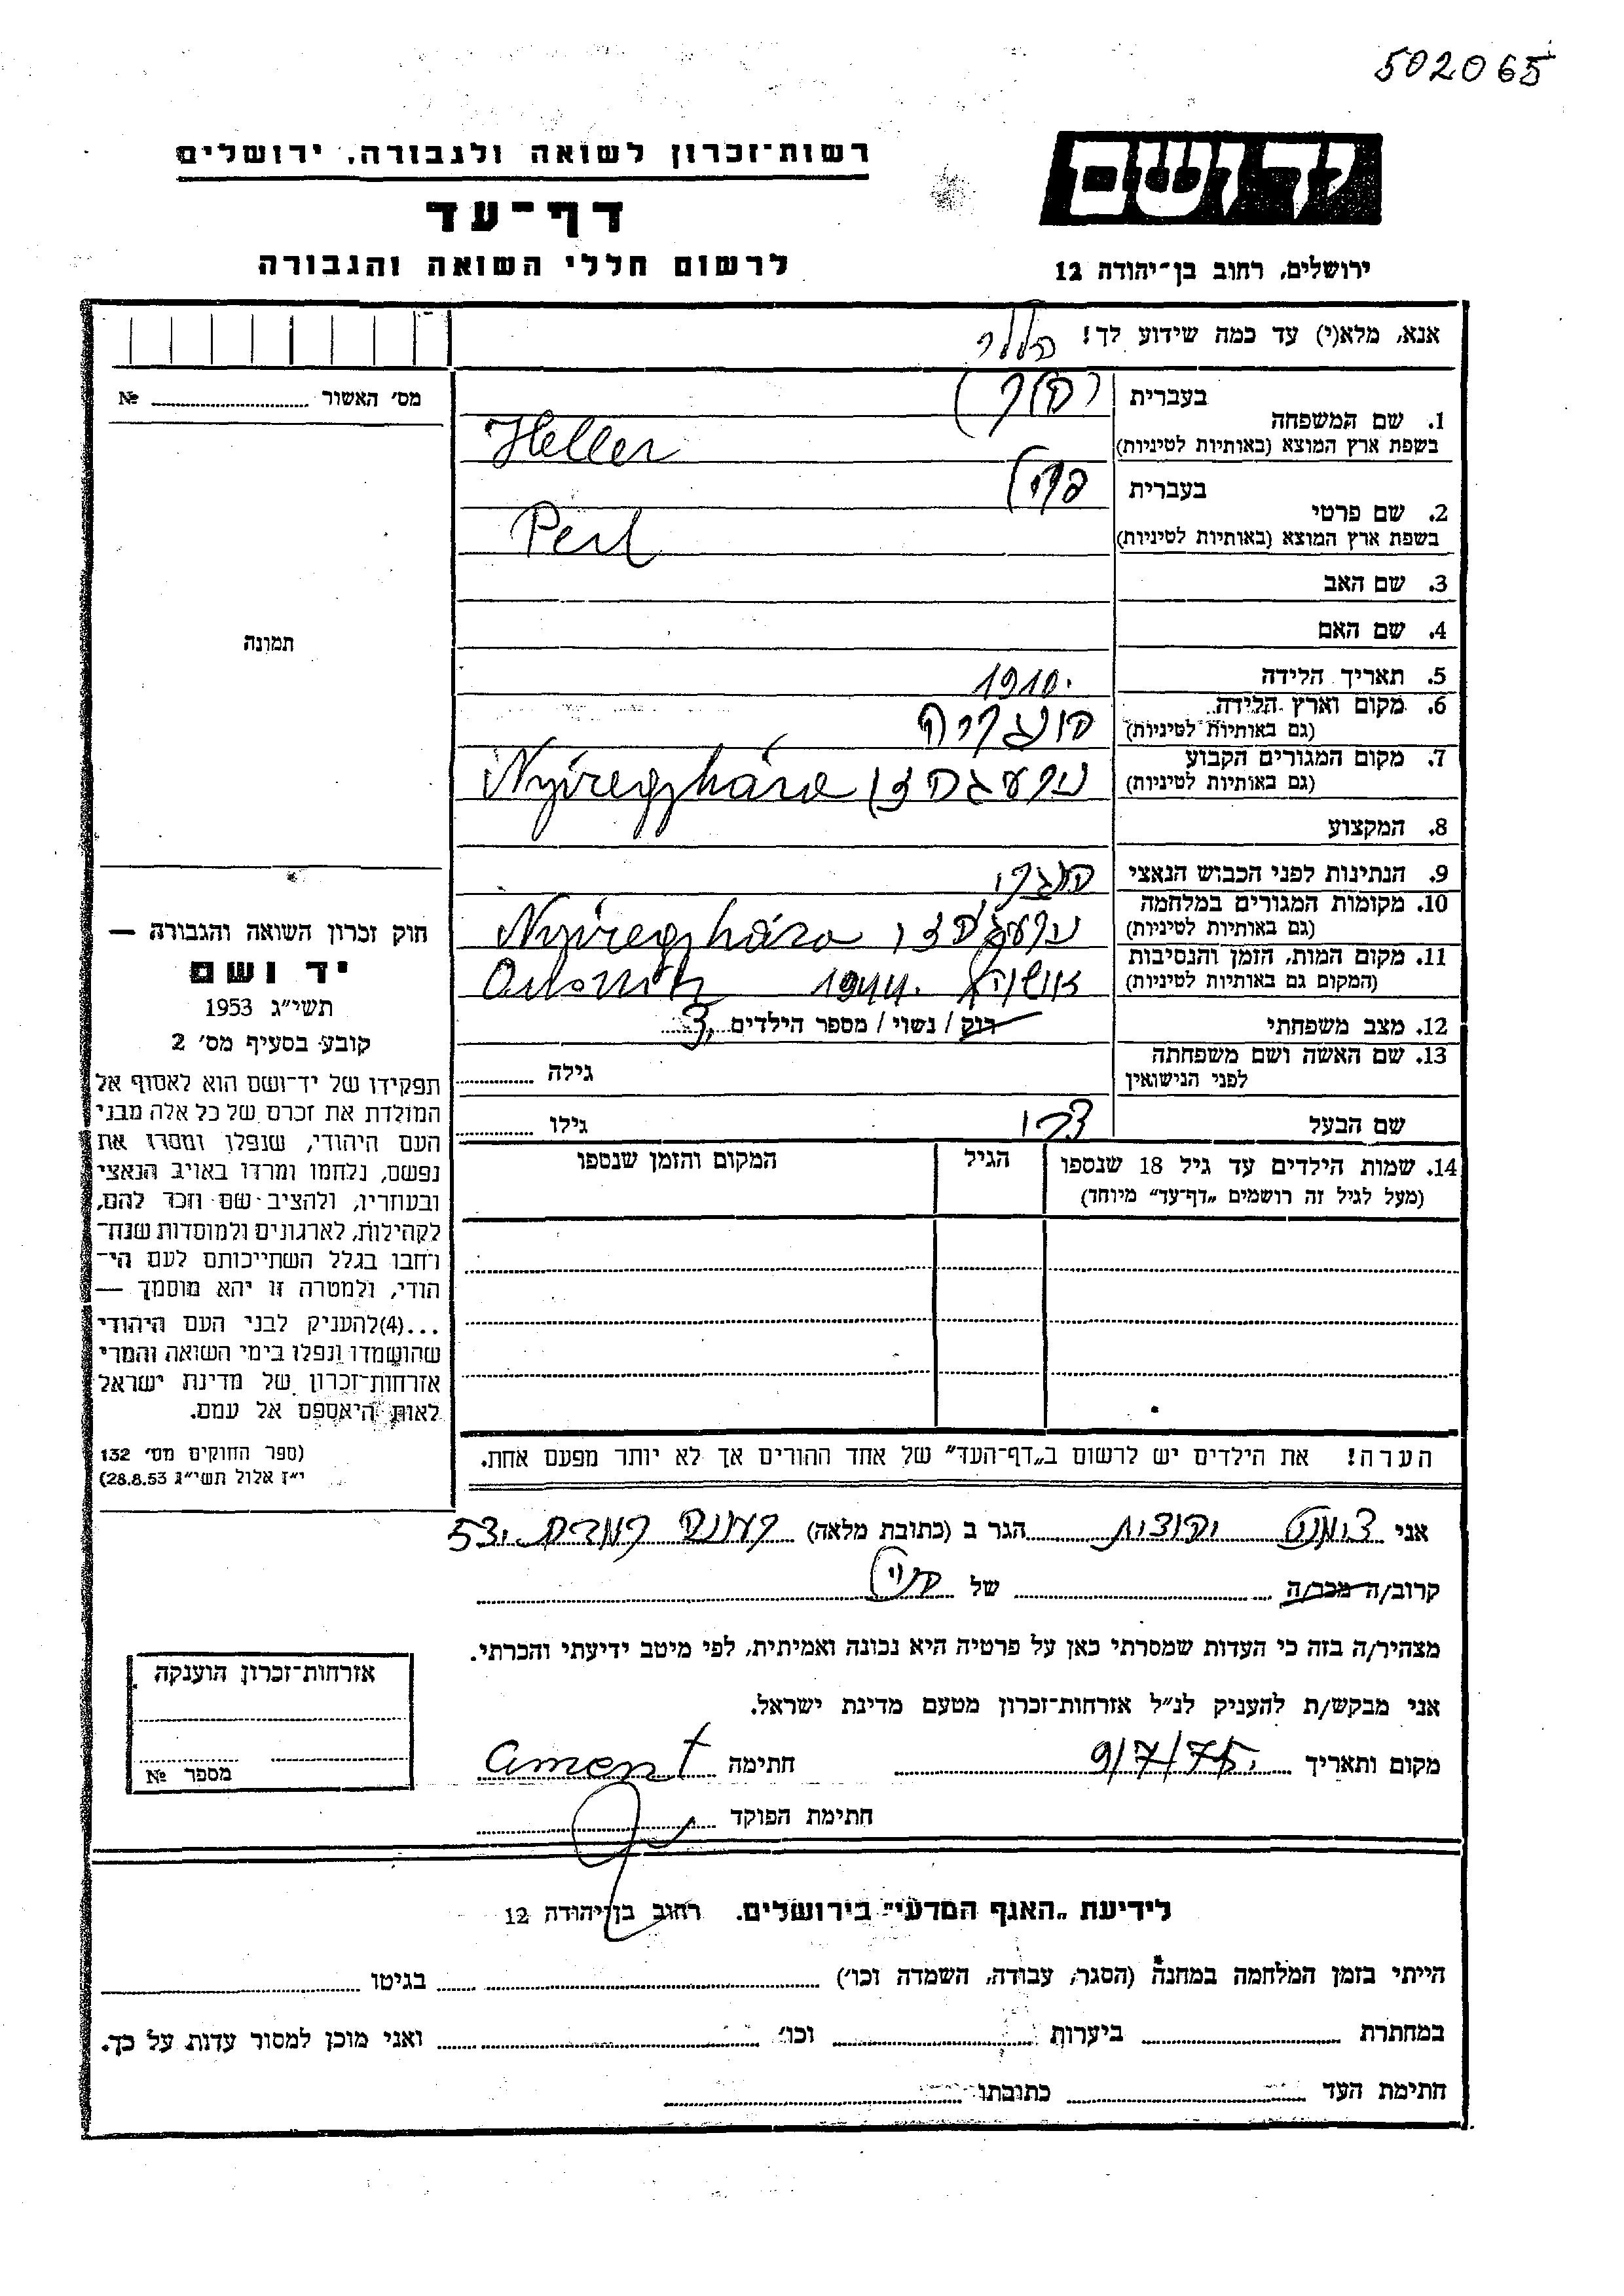 502065
יד ושם
רשות־זכרון לשואה ולגבורה, ירושלים
דף־עד
לרשום חללי השואה והגבורה
ירושלים, רחוב בן־יהודה 12
אנא, מלא(י) עד כמה שידוע לך!
מס׳ האשור № ....................
1. שם המשפחה
בעברית
בשפת ארץ המוצא (באותיות לטיניות) Heller
2. שם פרטי
בעברית פרל
בשפת ארץ המוצא (באותיות לטיניות) Perl
3. שם האב
4. שם האם
תמונה
5. תאריך הלידה 1910.
6. מקום וארץ הלידה הונגריה
(גם באותיות לטיניות)
7. מקום המגורים הקבוע
(גם באותיות לטיניות) Nyiregyháza
8. המקצוע
9. הנתינות לפני הכבוש הנאצי הונגרי
10. מקומות המגורים במלחמה
(גם באותיות לטיניות) Nyiregyháza
11. מקום המות, הזמן והנסיבות
(המקום גם באותיות לטיניות) 1944.
12. מצב משפחתי רוק / נשוי / מספר הילדים 3
13. שם האשה ושם משפחתה
לפני הנישואין
גילה ............
שם הבעל
גילו ............
14. שמות הילדים עד גיל 18 שנספו
(מעל לגיל זה רושמים „דף־עד” מיוחד)
הגיל
המקום והזמן שנספו
חוק זכרון השואה והגבורה —
יד ושם
תשי״ג 1953
קובע בסעיף מס׳ 2
תפקידו של יד־ושם הוא לאסוף אל
המולדת את זכרם של כל אלה מבני
העם היהודי, שנפלו ומסרו את
נפשם, נלחמו ומרדו באויב הנאצי
ובעוזריו, ולהציב שם וזכר להם,
לקהילות, לארגונים ולמוסדות שנח־
רחבו בגלל השתייכותם לעם הי־
הודי, ולמטרה זו יהא מוסמך —
...(4)להעניק לבני העם היהודי
שהושמדו ונפלו בימי השואה והמרי
אזרחות־זכרון של מדינת ישראל
לאות היאספם אל עמם.
(ספר החוקים מס׳ 132
י״ז אלול תשי״ג 28.8.53)
הערה! את הילדים יש לרשום ב„דף־העד” של אחד ההורים אך לא יותר מפעם אחת.
אני הגר ב (כתובת מלאה)
קרוב/ה מכר/ה של
מצהיר/ה בזה כי העדות שמסרתי כאן על פרטיה היא נכונה ואמיתית, לפי מיטב ידיעתי והכרתי.
אני מבקש/ת להעניק לנ״ל אזרחות־זכרון מטעם מדינת ישראל.
מקום ותאריך 9/7/75. חתימה ament
חתימת הפוקד
אזרחות־זכרון הוענקה
מספר №
לידיעת „האגף המדעי” בירושלים. רחוב בן־יהודה 12
הייתי בזמן המלחמה במחנה (הסגר, עבודה, השמדה וכו׳) .................... בגיטו ....................
במחתרת .................... ביערות .................... וכו׳ .................... ואני מוכן למסור עדות על כך.
חתימת העד .................... כתובתו ....................